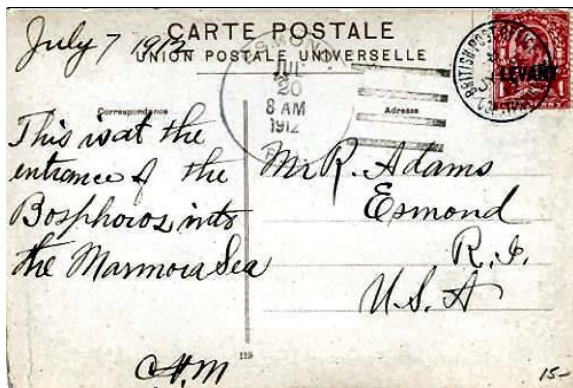 CARTE POSTALE
UNION POSTALE UNIVERSELLE
July 7 1912
ESMOND
JUL
20
8 AM
1912
R.I.
BRITISH POST OFFICE
LEVANT
1
1
Correspondance
Adresse
This is at the
entrance of the
Bosphoros into
the Marmora Sea
C.H.M
Mr R. Adams
Esmond
R.I.
U.S.A
119
15-